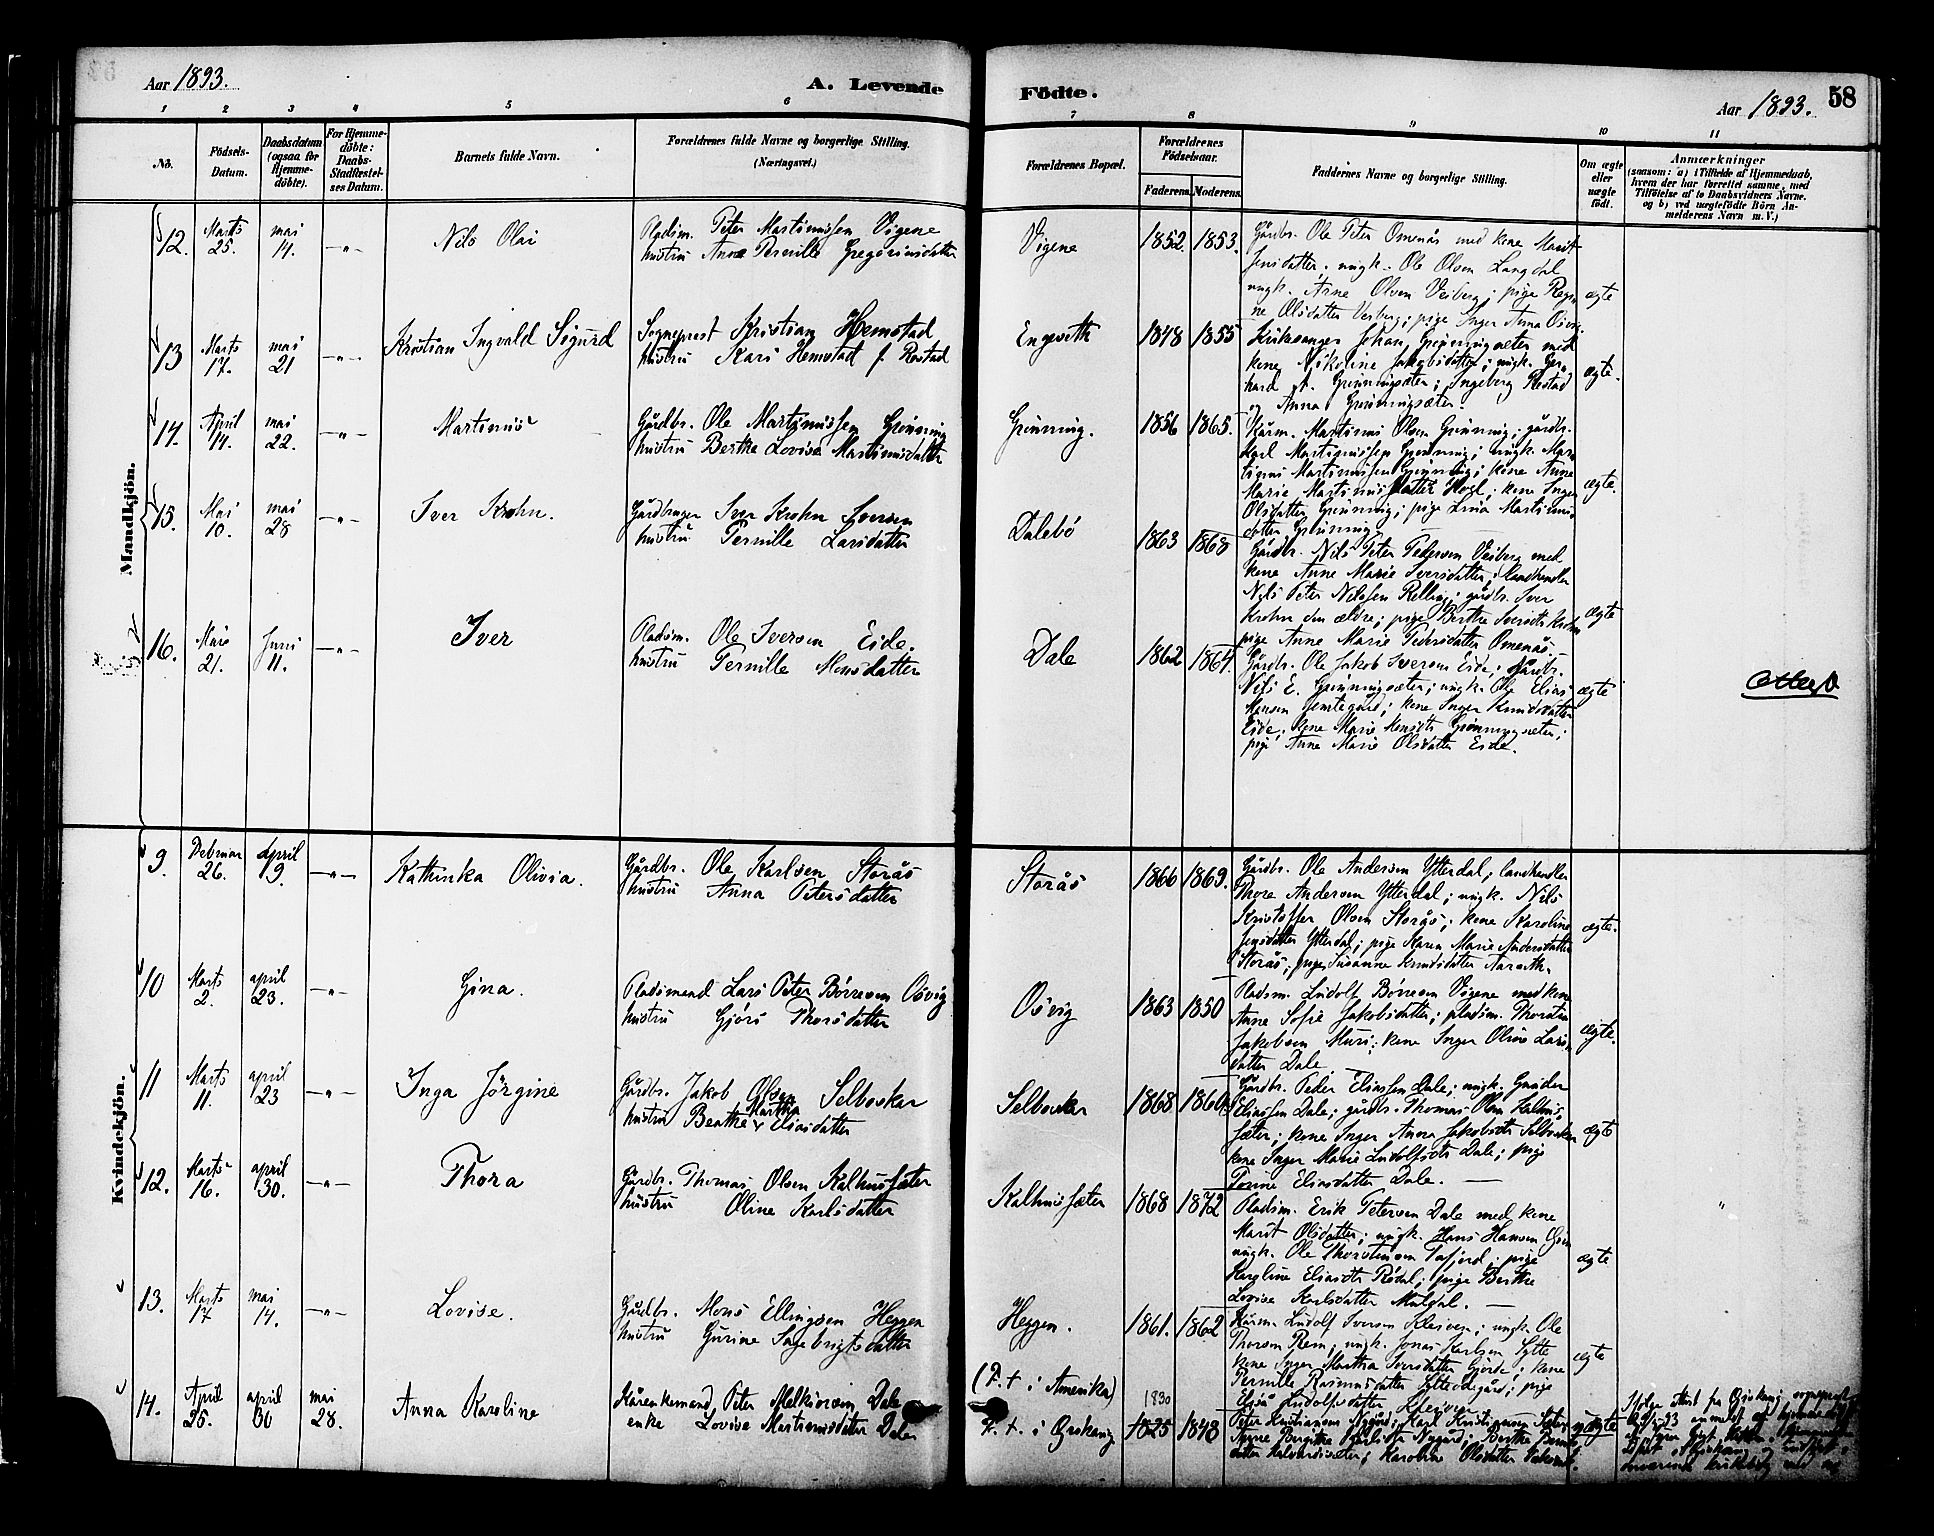 Aar 1893.
A. Levende
Födte.
Aar 1893.
58
1 2 3 4 5 6 7 8 9 10 11
No.
Födsels-Datum.
Daabsdatum (ogsaa for Hjemme-döbte).
For Hjemme-döbte: Daabs-Stadfæstel-ses Datum.
Barnets fulde Navn.
Forældrenes fulde Navne og borgerlige Stilling.
(Næringsvei.)
Forældrenes Bopæl.
Forældrenes Födselsaar.
Faderens. Moderens.
Faddernes Navne og borgerlige Stilling.
Om ægte eller uægte födt.
Anmærkninger
(saasom: a) i Tilfælde af Hjemmedaab, hvem der har forrettet samme, med Tilföielse af to Daabsvidners Navne. og b) ved uægtefödte Börn An-melderens Navn m. V.)
Mandkjön.
12. Marts 25. mai 14. -"- Nils Olai
Pladsm. Peter Martinussen Vigene
hustru Anne Pernille Gregoriusdatter
Vigene 1852. 1853.
Gårdbr. Ole Peter Omenås med kone Marit
Jensdatter; ungk. Ole Olsen Langdal
ungk. Arne Olsen Veiberg; pige Regi-
ne Olsdatter Veiberg; pige Inger Anna
ægte
13 Marts 17. mai 21 -"- Kristian Ingvald Sigurd
Sogneprest Kristian Hemstad
hustru Kari Hemstad f. Rostad
Engeseth 1848 1855
Kirkesanger Johan Grønningsæter med
kone Nikoline Jakobsdatter; ungk. Ger-
hard A. Grønningsæter; Ingeborg Rostad
og Anna Grønningsæter.
ægte.
14. April 14. mai 22. -"- Martinus
Gårdbr. Ole Martinussen Grønning
hustru Berthe Lovise Martinusdatter
Grønning. 1856 1865.
Kårm. Martinus Olsen Grønning; gårdbr.
Karl Martinussen Grønning; ungk. Mar-
tinus Martinussen Grønning; kone Anne
Marie Martinusdatter; kone Inger
Olsdatter Grønning; pige Lina Martinus-
datter Grønning
ægte.
15. Mai 10. mai 28 -"- Iver Krohn.
Gårdbruger Iver Krohn Iversen
hustru Pernille Larsdatter
Dalebø 1863 1868
Gårdbr. Nils Peter Pedersen Veiberg med
kone Anne Marie Iversdatter; landhandler
Nils Peter Nilssen Relling; gårdbr. Iver
Krohn den ældre; pige Berthe Iversdtr Krohn
pige Anne Marie Pedersdatter Omenås.
ægte
16. Mai 21. Juni 11. -"- Iver
Pladsm. Ole Iversen Eide.
hustru Pernille Monsdatter
Dale 1862 1864.
Gårdbr. Ole Jakob Iversen Eide; gårdbr.
Nils E. Grønningsæter; ungk. Ole Elias
Hansen; kone Inger Knudsdatter
Eide; kone Marie Monsdtr Grønningsæter;
pige Anne Marie Olsdatter Eide.
ægte
Attest
Kvindekjön.
9. Februar 26. April 9. -"- Kathinka Olivia.
Gårdbr. Ole Karlsen Storås
hustru Anna Petersdatter
Storås 1866 1869.
Gårdbr. Ole Andersen Ytterdal; landhandler
Thore Andersen Ytterdal; ungk. Nils
Kristoffer Olsen Storås; kone Karoline
Jensdatter Ytterdal; pige Karen Marie Andersdatter
Storås; pige Susanne Knudsdatter
ægte.
10 Marts 2. april 23. -"- Gina.
Pladsmand Lars Peter Børresen Osvig
hustru Gjøri Thorsdatter
Osvig 1863 1850
Pladsm. Ludolf Børresen Vigene med kone
Anne Sofie Jakobsdatter; pladsm. Thorsten
Jakobsen Muri; kone Inger Oline Lars-
datter Dale
ægte.
11 Marts 11. april 23 -"- Inga Jørgine
Gårdbr. Jakob Olsen Selboskar
hustru Berthe Martha Eliasdatter
Selboskar 1868 1860
Gårdbr. Peder Eliassen Dale; ungk.
Eliassen Dale; gårdbr. Thomas Olsen Kalhus-
sæter; kone Inger Anna Jakobsdtr Selboskar
kone Inger Marie Ludolfsdtr Dale; pige
Torine Eliasdatter Dale.
ægte
12. Marts 16. april 30. -"- Thora
Gårdbr. Thomas Olsen Kalhussæter
hustru Oline Karlsdatter
Kalhussæter 1868 1872
Pladsm. Erik Petersen Dale med kone
Marit Olsdatter; ungk. Hans Hansen
ungk. Ole Thorstensen Tafjord; pige
Karoline Eliasdtr Rødal; pige Berthe
Lovise Karlsdatter Muldal.
ægte
13. Marts 17 mai 14. -"- Lovise.
Gårdbr. Mons Ellingsen Heggen
hustru Gurine Ingebrigtsdatter
Heggen. 1861. 1862
Kårm. Ludolf Iversen Kleiven; ungk. Ole
Thorsen Rem; ungk. Jonas Karlsen Sylte
kone Inger Martha Iversdatter Gjørde; kone
Pernille Rasmusdatter; pige
Elisa Ludolfsdatter Kleiven
ægte
14. April 25. april 30 mai 28. Anna Karoline
Peter Melkiorsen Dale
enke Lovise Martinusdatter Dale
(F. † i Amerika)
1830
1825 1848
Peter Kristiansen Nygård; Karl Kristiansen
Anne Birgitte Nygård; Berthe
Karoline Olsdatter
uægte